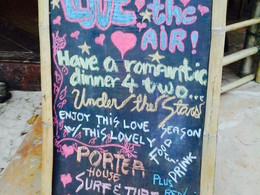 LOVE the
AIR!
Have a romantic
dinner 4 two...
Under the Stars
ENJOY THIS LOVE SEASON
W/ THIS LOVELY FOOD &
DRINK
PORTER
HOUSE
SURF & TURF
PLUS